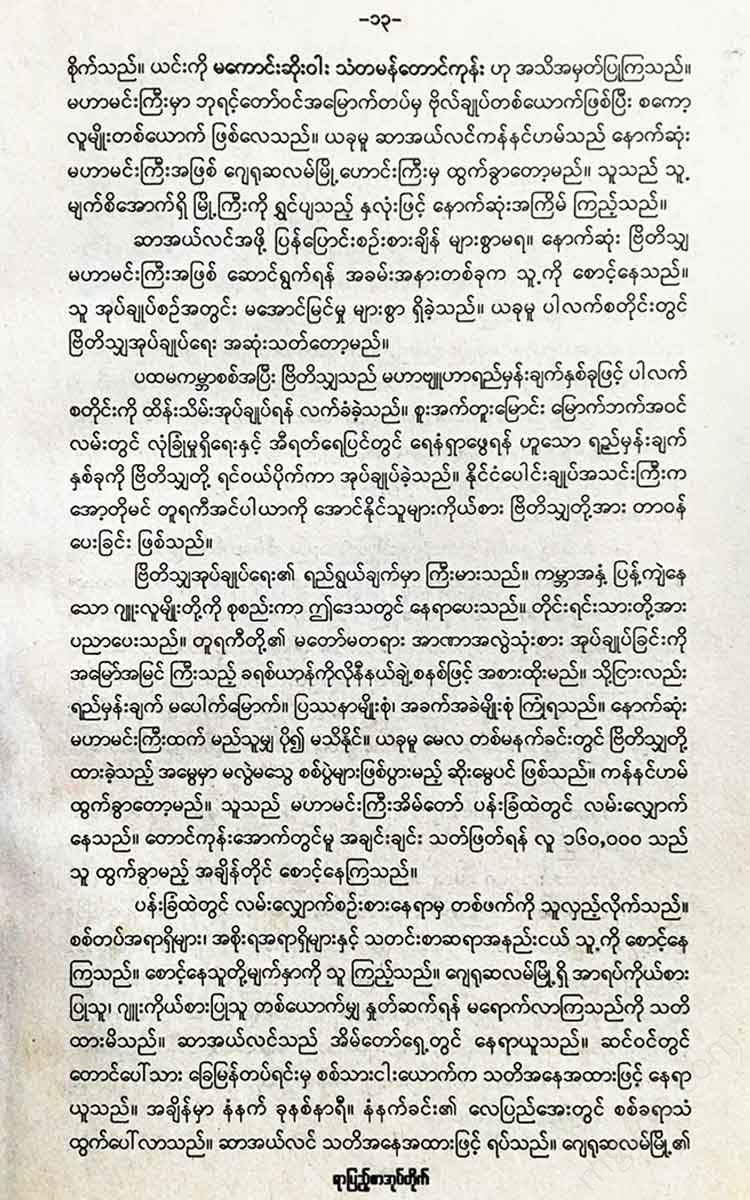 –၁၃–
စိုက်သည်။ ယင်းကို မကောင်းဆိုးဝါး သံတမန်တောင်ကုန်း ဟု အသိအမှတ်ပြုကြသည်။
မဟာမင်းကြီးမှာ ဘုရင့်တော်ဝင်အမြောက်တပ်မှ ဗိုလ်ချုပ်တစ်ယောက်ဖြစ်ပြီး စကော့
လူမျိုးတစ်ယောက် ဖြစ်လေသည်။ ယခုမူ ဆာအယ်လင်ကန်နင်ဟမ်သည် နောက်ဆုံး
မဟာမင်းကြီးအဖြစ် ဂျေရုဆလမ်မြို့ဟောင်းကြီးမှ ထွက်ခွာတော့မည်။ သူသည် သူ့
မျက်စိအောက်ရှိ မြို့ကြီးကို ရွှင်ပျသည့် နှလုံးဖြင့် နောက်ဆုံးအကြိမ် ကြည့်သည်။
ဆာအယ်လင်အဖို့ ပြန်ပြောင်းစဉ်းစားချိန် များစွာမရ။ နောက်ဆုံး ဗြိတိသျှ
မဟာမင်းကြီးအဖြစ် ဆောင်ရွက်ရန် အခမ်းအနားတစ်ခုက သူ့ကို စောင့်နေသည်။
သူ အုပ်ချုပ်စဉ်အတွင်း မအောင်မြင်မှု များစွာ ရှိခဲ့သည်။ ယခုမူ ပါလက်စတိုင်းတွင်
ဗြိတိသျှအုပ်ချုပ်ရေး အဆုံးသတ်တော့မည်။
ပထမကမ္ဘာစစ်အပြီး ဗြိတိသျှသည် မဟာဗျူဟာရည်မှန်းချက်နှစ်ခုဖြင့် ပါလက်
စတိုင်းကို ထိန်းသိမ်းအုပ်ချုပ်ရန် လက်ခံခဲ့သည်။ စူးအက်တူးမြောင်း မြောက်ဘက်အဝင်
လမ်းတွင် လုံခြုံမှုရှိရေးနှင့် အီရတ်ရေပြင်တွင် ရေနံရှာဖွေရန် ဟူသော ရည်မှန်းချက်
နှစ်ခုကို ဗြိတိသျှတို့ ရင်ဝယ်ပိုက်ကာ အုပ်ချုပ်ခဲ့သည်။ နိုင်ငံပေါင်းချုပ်အသင်းကြီးက
အော့တိုမင် တူရကီအင်ပါယာကို အောင်နိုင်သူများကိုယ်စား ဗြိတိသျှတို့အား တာဝန်
ပေးခြင်း ဖြစ်သည်။
ဗြိတိသျှအုပ်ချုပ်ရေး၏ ရည်ရွယ်ချက်မှာ ကြီးမားသည်။ ကမ္ဘာအနှံ့ ပြန့်ကျဲနေ
သော ဂျူးလူမျိုးတို့ကို စုစည်းကာ ဤဒေသတွင် နေရာပေးသည်။ တိုင်းရင်းသားတို့အား
ပညာပေးသည်။ တူရကီတို့၏ မတော်မတရား အာဏာအလွဲသုံးစား အုပ်ချုပ်ခြင်းကို
အမြော်အမြင် ကြီးသည့် ခရစ်ယာန်ကိုလိုနီနယ်ချဲ့စနစ်ဖြင့် အစားထိုးမည်။ သို့ငြားလည်း
ရည်မှန်းချက် မပေါက်မြောက်။ ပြဿနာမျိုးစုံ၊ အခက်အခဲမျိုးစုံ ကြုံရသည်။ နောက်ဆုံး
မဟာမင်းကြီးထက် မည်သူမျှ ပို၍ မသိနိုင်။ ယခုမူ မေလ တစ်မနက်ခင်းတွင် ဗြိတိသျှတို့
ထားခဲ့သည့် အမွေမှာ မလွဲမသွေ စစ်ပွဲများဖြစ်ပွားမည့် ဆိုးမွေပင် ဖြစ်သည်။ ကန်နင်ဟမ်
ထွက်ခွာတော့မည်။ သူသည် မဟာမင်းကြီးအိမ်တော် ပန်းခြံထဲတွင် လမ်းလျှောက်
နေသည်။ တောင်ကုန်းအောက်တွင်မူ အချင်းချင်း သတ်ဖြတ်ရန် လူ ၁၆၀,၀၀၀ သည်
သူ ထွက်ခွာမည့် အချိန်တိုင် စောင့်နေကြသည်။
ပန်းခြံထဲတွင် လမ်းလျှောက်စဉ်းစားနေရာမှ တစ်ဖက်ကို သူလှည့်လိုက်သည်။
စစ်တပ်အရာရှိများ၊ အစိုးရအရာရှိများနှင့် သတင်းစာဆရာအနည်းငယ် သူ့ကို စောင့်နေ
ကြသည်။ စောင့်နေသူတို့မျက်နှာကို သူ ကြည့်သည်။ ဂျေရုဆလမ်မြို့ရှိ အာရပ်ကိုယ်စား
ပြုသူ၊ ဂျူးကိုယ်စားပြုသူ တစ်ယောက်မျှ နှုတ်ဆက်ရန် မရောက်လာကြသည်ကို သတိ
ထားမိသည်။ ဆာအယ်လင်သည် အိမ်တော်ရှေ့တွင် နေရာယူသည်။ ဆင်ဝင်တွင်
တောင်ပေါ်သား ခြေမြန်တပ်ရင်းမှ စစ်သားငါးယောက်က သတိအနေအထားဖြင့် နေရာ
ယူသည်။ အချိန်မှာ နံနက် ခုနစ်နာရီ။ နံနက်ခင်း၏ လေပြည်အေးတွင် စစ်ခရာသံ
ထွက်ပေါ်လာသည်။ ဆာအယ်လင် သတိအနေအထားဖြင့် ရပ်သည်။ ဂျေရုဆလမ်မြို့၏
ရာပြည့်စာအုပ်တိုက်